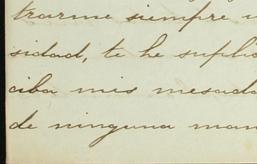 trarme siempre
sidad, te he suplic
ciba mis mesada
de ninguna man